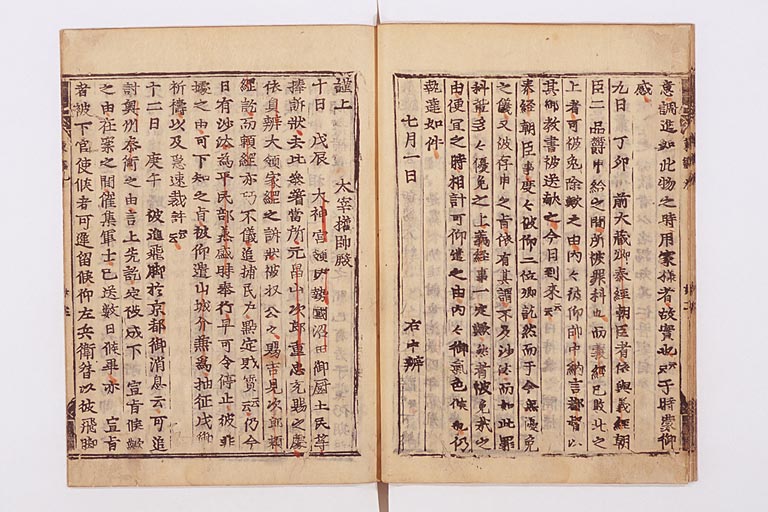 意調進如此物之時用家様者故實也云々于時蒙御
感
九日 丁卯 前大藏卿泰經朝臣者依与義經朝
臣二品欝申給之間所被罪科也而泰經已歎此之
上者可被免除歟之由内々被仰帥中納言都督以
其御教書被送献之今日到来云々
泰經朝臣事度々被仰二位卿訖然而于今無優免
之儀又波存申之旨依有其謂不及沙汰而如此罪
科輩多以優免之上義經事一定歟然者被免我之
由便宜之時相計可仰遣之由内々御氣色候也仍
執達如件
七月一日 右中辨
謹上 大宰權帥殿
十日 戊辰 大神宮領伊勢國沼田御厨土民等
捧訴状去比參著當所元畠山次郎重忠充賜之處
依員辨大領家經之訴状被收公之賜吉見次郎頼
綱訖而頼綱亦巧不儀追捕民戸點定財寳云々仍今
日有沙汰爲平民部丞盛時奉行早可令停止彼非
據之由可下知之旨被仰遣山城介兼爲抽征戍御
祈禱以及急速裁許云々
十二日 庚午 被進飛脚於京都御消息云可追
討奥州泰衡之由言上先訖定被成下 宣旨候歟
之由在案之間催集軍士已送數日候畢亦 宣旨
者被下官使候者可遲留候仰左兵衞督以彼飛脚